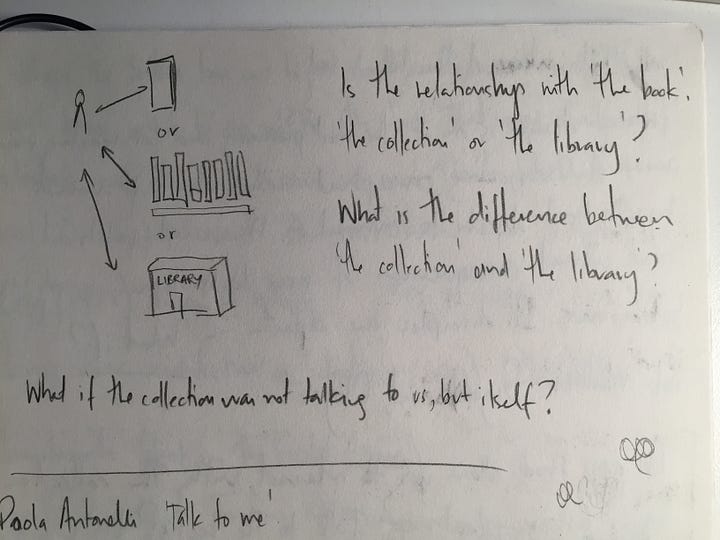 Is the relationship with 'the book'.
or
'the collection' or 'the library'?
What is the difference between
or
'the collection' and 'the library'?
LIBRARY
What if the collection was not talking to us, but itself?
Paola Antonelli 'Talk to me'